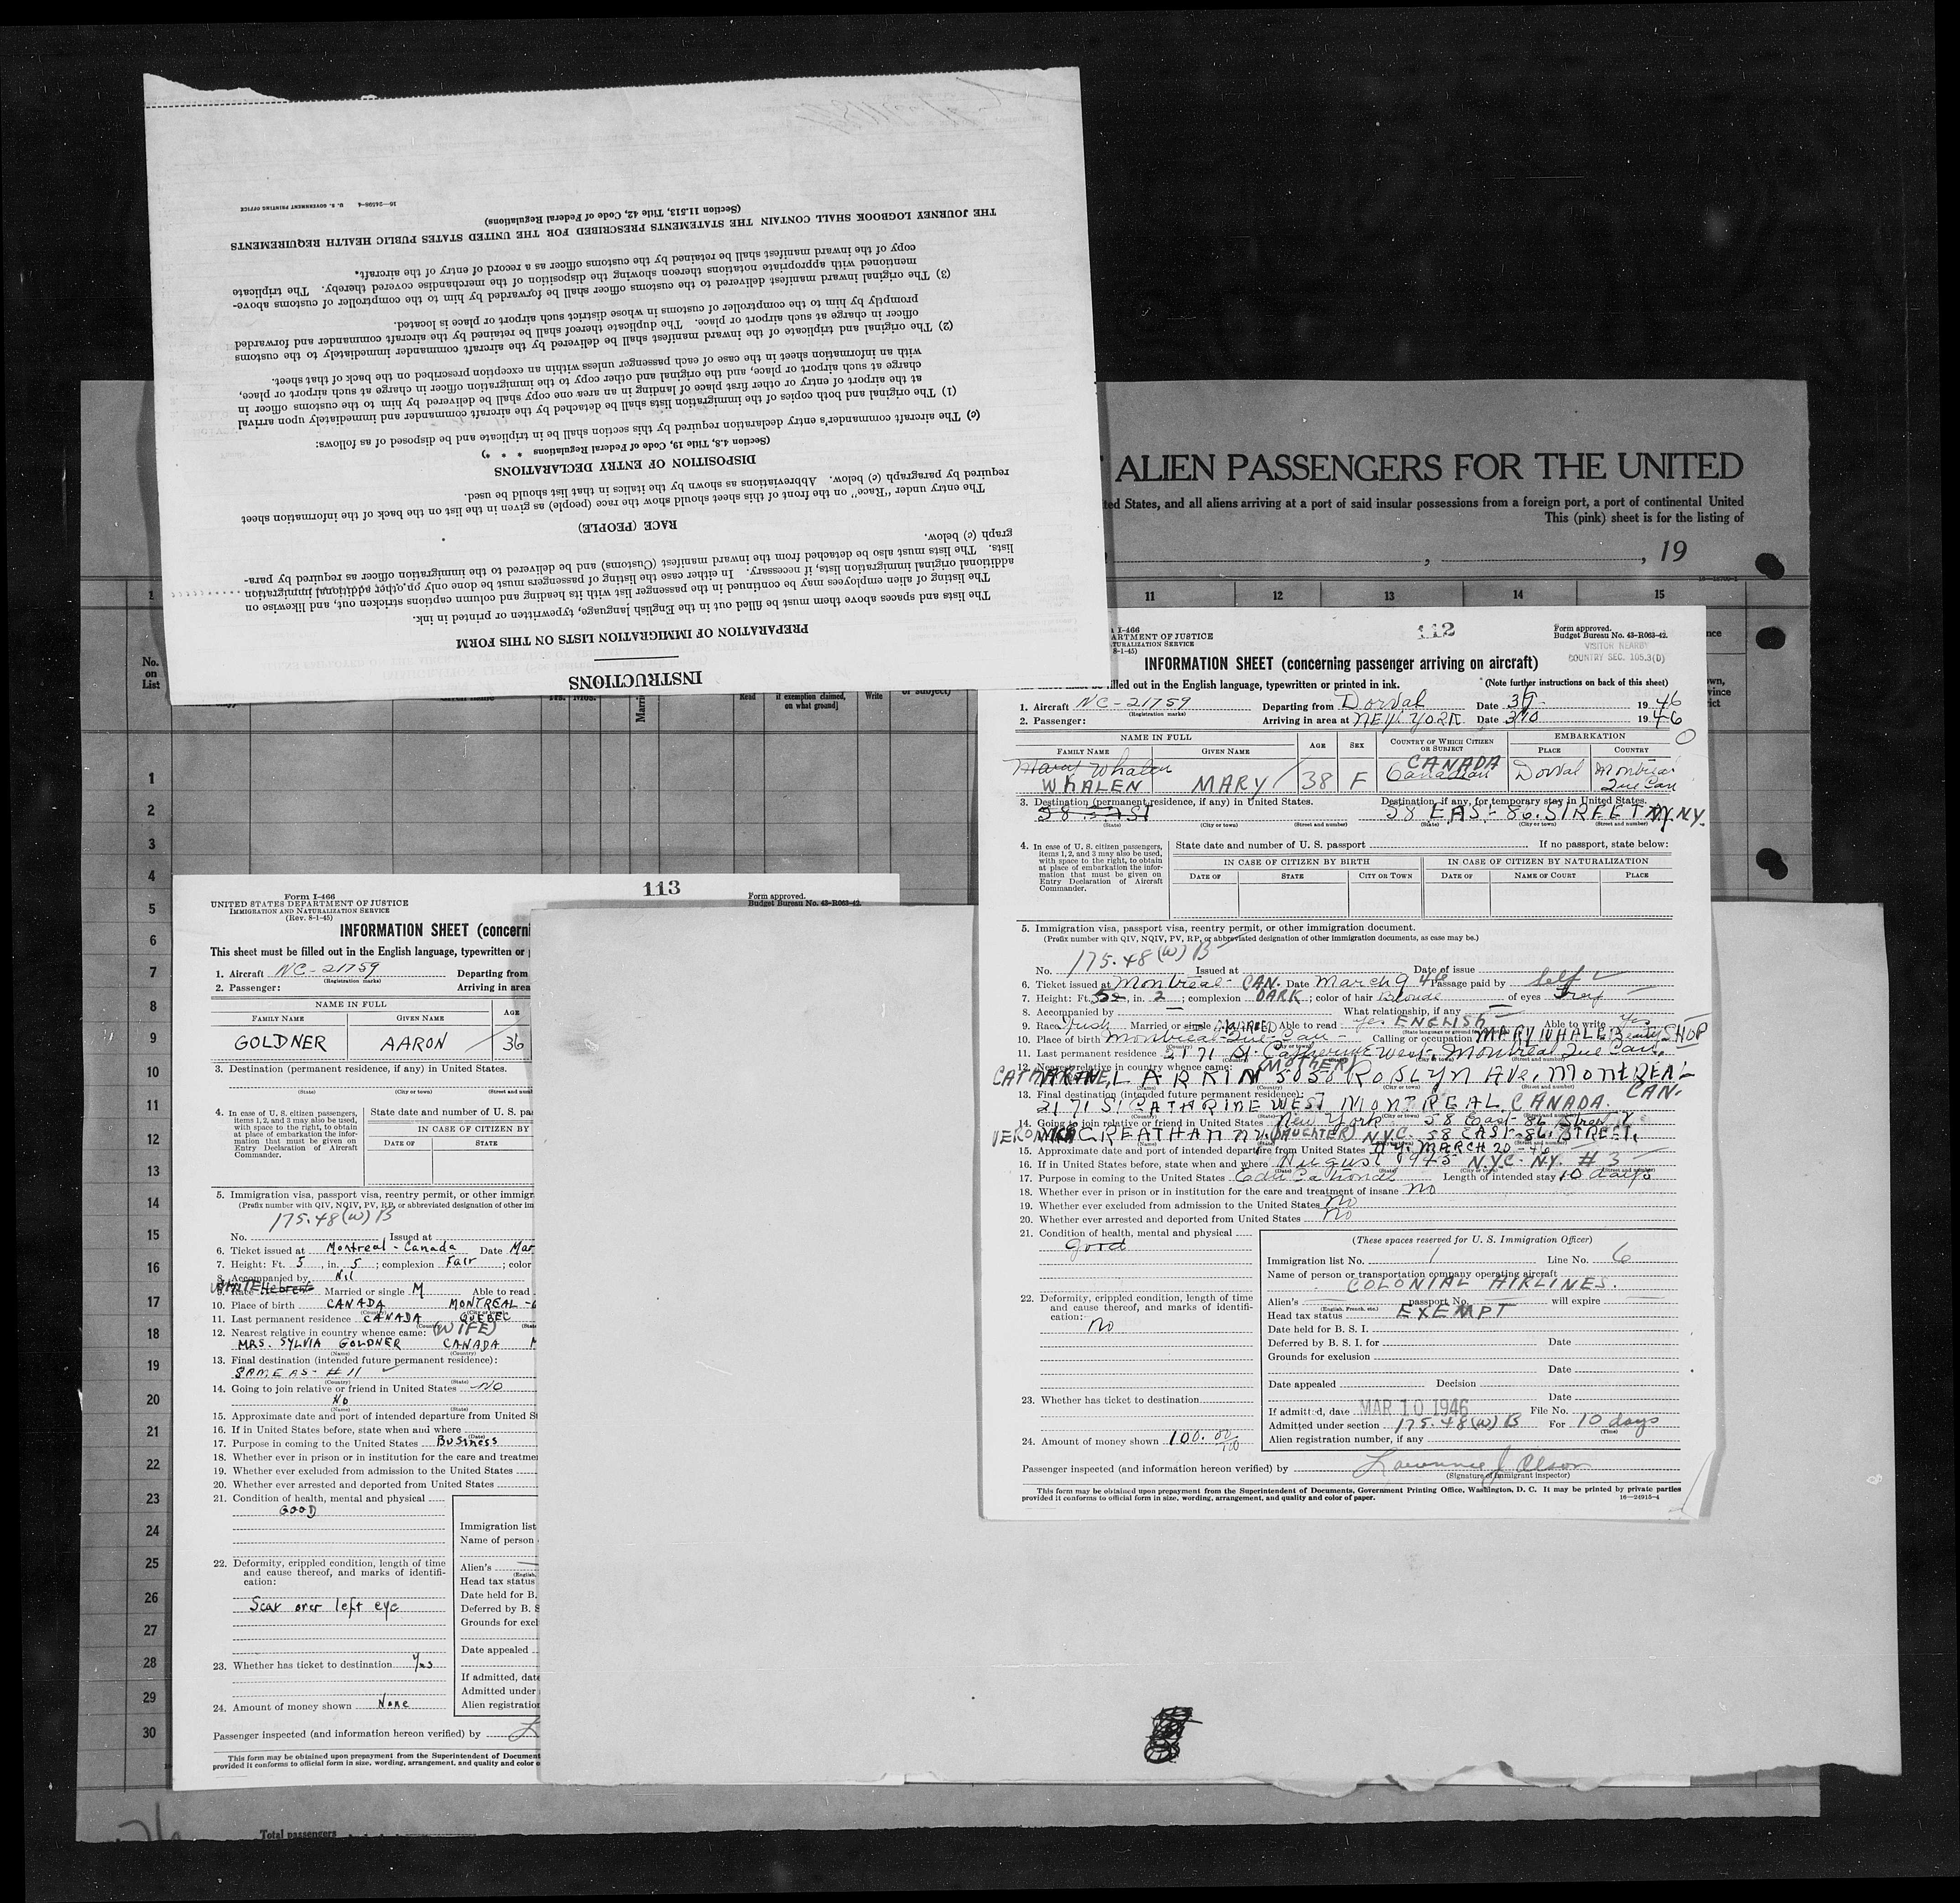 INSTRUCTIONS
PREPARATION OF IMMIGRATION LISTS ON THIS FORM
The lists and spaces above them must be filled out in the English language, typewritten or printed in ink.
The listing of alien employees may be continued in the passenger list with its heading and column captions stricken out, and likewise on
additional original immigration lists, if necessary. In either case the listing of passengers must be done only on other additional immigration
lists. The lists must also be detached from the inward manifest (Customs) and be delivered to the immigration officer as required by para-
graph (c) below.
RACE (PEOPLE)
The entry under "Race" on the front of this sheet should show the race (people) as given in the list on the back of the information sheet
required by paragraph (c) below. Abbreviations as shown by the italics in that list should be used.
DISPOSITION OF ENTRY DECLARATIONS
(Section 4.8, Title 19, Code of Federal Regulations * * *)
(c) The aircraft commander's entry declaration required by this section shall be in triplicate and be disposed of as follows:
(1) The original and both copies of the immigration lists shall be detached by the aircraft commander and immediately upon arrival
at the airport of entry or other first place of landing in an area one copy shall be delivered by him to the customs officer in
charge at such airport or place, and the original and other copy to the immigration officer in charge at such airport or place,
with an information sheet in the case of each passenger unless within an exception prescribed on the back of that sheet.
(2) The original and triplicate of the inward manifest shall be delivered by the aircraft commander immediately to the customs
officer in charge at such airport or place. The duplicate thereof shall be retained by the aircraft commander and forwarded
promptly by him to the comptroller of customs in whose district such airport or place is located.
(3) The original inward manifest delivered to the customs officer shall be forwarded by him to the comptroller of customs above-
mentioned with appropriate notations thereon showing the disposition of the merchandise covered thereby. The triplicate
copy of the inward manifest shall be retained by the customs officer as a record of entry of the aircraft.
THE JOURNEY LOGBOOK SHALL CONTAIN THE STATEMENTS PRESCRIBED FOR THE UNITED STATES PUBLIC HEALTH REQUIREMENTS
(Section 11.513, Title 42, Code of Federal Regulations)
16—24598-4 U. S. GOVERNMENT PRINTING OFFICE
ALIEN PASSENGERS FOR THE UNITED
ted States, and all aliens arriving at a port of said insular possessions from a foreign port, a port of continental United
This (pink) sheet is for the listing of
, , 19
11 12 13 14 15
No.
on
List
Read if exemption claimed, on what ground] Write or subject)
1
2
3
4
5
6
7
8
9
10
11
12
13
14
15
16
17
18
19
20
21
22
23
24
25
26
27
28
29
30
Total passengers
112
I-466
ARTMENT OF JUSTICE
TURALIZATION SERVICE
8-1-45)
Form approved.
Budget Bureau No. 43-R063-42.
VISITOR NEARBY
COUNTRY SEC. 105.3(D)
INFORMATION SHEET (concerning passenger arriving on aircraft)
filled out in the English language, typewritten or printed in ink. (Note further instructions on back of this sheet)
1. Aircraft NC-21759 (Registration marks) Departing from Dorval Date 19 46
2. Passenger: Arriving in area at NEW YORK Date 3/10 19 46
NAME IN FULL AGE SEX COUNTRY OF WHICH CITIZEN OR SUBJECT EMBARKATION
FAMILY NAME GIVEN NAME PLACE COUNTRY
Mary Whalen CANADA
WHALEN MARY 38 F Canadian Dorval Montreal Que Can
3. Destination (permanent residence, if any) in United States. Destination, if any, for temporary stay in United States.
58 EAST 58 EAS- 86. STREET N.Y. N.Y.
(State) (City or town) (Street and number) (State) (City or town) (Street and number)
4. In case of U. S. citizen passengers, items 1, 2, and 3 may also be used, with space to the right, to obtain at place of embarkation the information that must be given on Entry Declaration of Aircraft Commander.
State date and number of U. S. passport If no passport, state below:
IN CASE OF CITIZEN BY BIRTH IN CASE OF CITIZEN BY NATURALIZATION
DATE OF STATE CITY OR TOWN DATE OF NAME OF COURT PLACE
5. Immigration visa, passport visa, reentry permit, or other immigration document.
(Prefix number with QIV, NQIV, PV, RP, or abbreviated designation of other immigration documents, as case may be.)
No. 175.48(w) B Issued at Date of issue
6. Ticket issued at Montreal - CAN. Date March 9 46 Passage paid by Self
7. Height: Ft. 5, in. 2; complexion DARK; color of hair Blonde of eyes Grey
8. Accompanied by — What relationship, if any —
9. Race Irish Married or single MARRIED Able to read yes ENGLISH Able to write yes
10. Place of birth Montreal-Que-Can- Calling or occupation MARY WHALEN Beauty SHOP
11. Last permanent residence 2171 St. Catherine West. Montreal Que Can.
12. Nearest relative in country whence came: (MOTHER)
CATHARINE, LARKIN 5050 ROSLYN AVE, MONTREAL CAN.
13. Final destination (intended future permanent residence):
2171 ST CATHRINE WEST MONTREAL CANADA.
14. Going to join relative or friend in United States New York 58 East 86 Street
VERONICA GREATHAN (DAUGHTER) N.Y.C. 58 EAST-86. STREET.
15. Approximate date and port of intended departure from United States N.Y. MARCH 20-46
16. If in United States before, state when and where August 1945 N.Y.C. N.Y. #3
17. Purpose in coming to the United States Educational Length of intended stay 10 days
18. Whether ever in prison or in institution for the care and treatment of insane no
19. Whether ever excluded from admission to the United States no
20. Whether ever arrested and deported from United States no
21. Condition of health, mental and physical
good
22. Deformity, crippled condition, length of time and cause thereof, and marks of identification:
no
23. Whether has ticket to destination
24. Amount of money shown 100.00/00
(These spaces reserved for U. S. Immigration Officer)
Immigration list No. 1 Line No. 6
Name of person or transportation company operating aircraft
COLONIAL AIRLINES.
Alien's passport No. will expire
(English, French, etc.)
Head tax status EXEMPT
Date held for B. S. I.
Deferred by B. S. I. for Date
Grounds for exclusion
Date
Date appealed Decision
Date
If admitted, date MAR 10 1946 File No.
Admitted under section 175.48(w) B For 10 days
(Time)
Alien registration number, if any
Passenger inspected (and information hereon verified) by Lawrence J Olson
(Signature of immigrant inspector)
This form may be obtained upon prepayment from the Superintendent of Documents, Government Printing Office, Washington, D. C. It may be printed by private parties
provided it conforms to official form in size, wording, arrangement, and quality and color of paper. 16—24915-4
113
Form I-466
UNITED STATES DEPARTMENT OF JUSTICE
IMMIGRATION AND NATURALIZATION SERVICE
(Rev. 8-1-45)
Form approved.
Budget Bureau No. 43-R063-42.
INFORMATION SHEET (concerni
This sheet must be filled out in the English language, typewritten or p
1. Aircraft NC-21759 (Registration marks) Departing from
2. Passenger: Arriving in area
NAME IN FULL AGE
FAMILY NAME GIVEN NAME
GOLDNER AARON 36
3. Destination (permanent residence, if any) in United States.
(State) (City or town) (Street and numb
4. In case of U. S. citizen passengers, items 1, 2, and 3 may also be used, with space to the right, to obtain at place of embarkation the information that must be given on Entry Declaration of Aircraft Commander.
State date and number of U. S. pa
IN CASE OF CITIZEN BY
DATE OF STATE
5. Immigration visa, passport visa, reentry permit, or other immigr
(Prefix number with QIV, NQIV, PV, RP, or abbreviated designation of other im
175.48(w) B
No. Issued at
6. Ticket issued at Montreal - Canada Date Mar
7. Height: Ft. 5, in. 5; complexion Fair; color
8. Accompanied by Nil
9. Race WHITE Hebrew Married or single M Able to read
10. Place of birth CANADA MONTREAL -
11. Last permanent residence CANADA QUEBEC
12. Nearest relative in country whence came: (WIFE)
MRS. SYLVIA GOLDNER CANADA
13. Final destination (intended future permanent residence):
SAME AS - #11
14. Going to join relative or friend in United States NO
No
15. Approximate date and port of intended departure from United S
16. If in United States before, state when and where
17. Purpose in coming to the United States Business
18. Whether ever in prison or in institution for the care and treatme
19. Whether ever excluded from admission to the United States
20. Whether ever arrested and deported from United States
21. Condition of health, mental and physical
GOOD
22. Deformity, crippled condition, length of time and cause thereof, and marks of identification:
Scar over left eye
23. Whether has ticket to destination Yes
24. Amount of money shown None
Immigration list
Name of person
Alien's
(English,
Head tax status
Date held for B.
Deferred by B. S
Grounds for excl
Date appealed
If admitted, date
Admitted under
Alien registration
Passenger inspected (and information hereon verified) by
This form may be obtained upon prepayment from the Superintendent of Document
provided it conforms to official form in size, wording, arrangement, and quality and color o